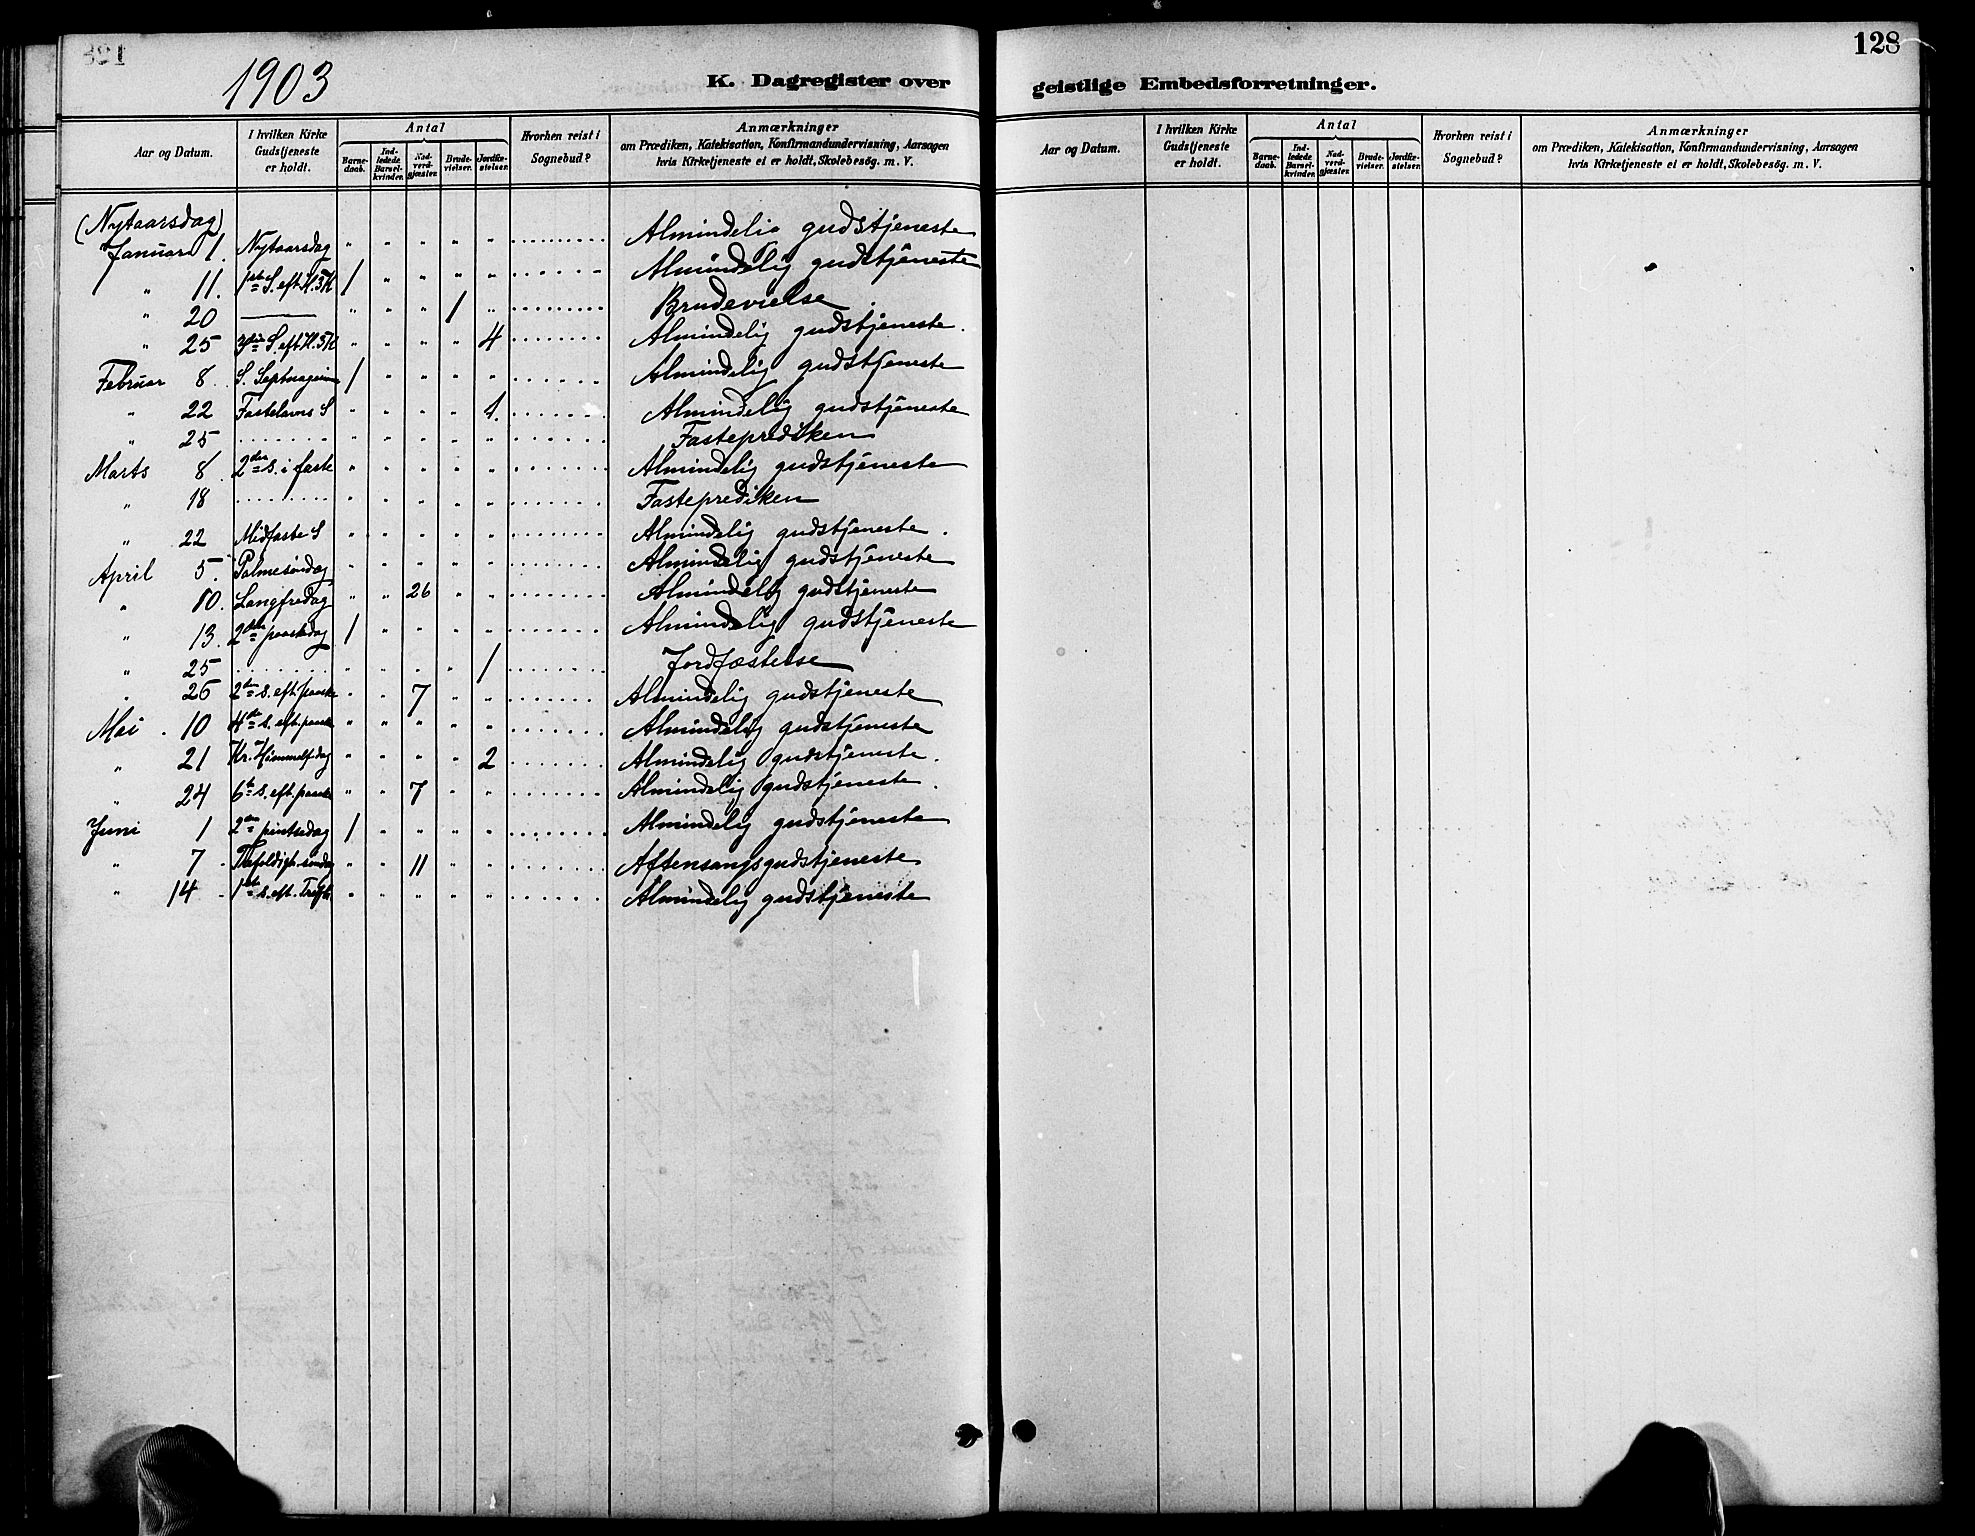 1903
K. Dagregister over
geistlige Embedsforretninger.
128
Aar og Datum. | I hvilken Kirke Gudstjeneste er holdt. | Antal | Barne-daab. | Ind-ledede Barsel-kvinder. | Nad-verd-gjæster. | Brude-vielser. | Jordfæ-stelser. | Hvorhen reist i Sognebud? | Anmærkninger om Prædiken, Katekisation, Konfirmandundervisning, Aarsagen hvis Kirketjeneste ei er holdt, Skolebesøg. m. V.
(Nytaarsdag)
Januar 1. | Nytaarsdag | " | " | " | " | " | .......... | Almindelig gudstjeneste
" 11. | 1ste S. eft. H.3K | 1 | " | " | " | " | .......... | Almindelig gudstjeneste
" 20 | — | " | " | " | 1 | " | .......... | Brudevielse
" 25 | 3die S. eft. H.3K | " | " | " | " | 4 | .......... | Almindelig gudstjeneste.
Februar 8. | S. Septuagesima | 1 | " | " | " | " | .......... | Almindelig gudstjeneste
" 22 | Fastelavns S | " | " | " | " | 1. | .......... | Almindelig gudstjeneste
" 25 | ........ | " | " | " | " | " | .......... | Fasteprediken
Marts 8. | 2den s. i faste | " | " | " | " | " | .......... | Almindelig gudstjeneste
" 18 | ........ | " | " | " | " | " | .......... | Fasteprediken
" 22 | Midfaste S | " | " | " | " | " | .......... | Almindelig gudstjeneste.
April 5. | Palmesöndag | " | " | " | " | " | .......... | Almindelig gudstjeneste
" 10. | Langfredag | " | " | 26 | " | " | .......... | Almindelig gudstjeneste
" 13. | 2den paaskedag | 1 | " | " | " | " | .......... | Almindelig gudstjeneste
" 25 | ........ | " | " | " | " | 1 | .......... | Jordfæstelse
" 26 | 2den s. eft. paaske | " | " | 7 | " | " | .......... | Almindelig gudstjeneste
Mai. 10 | 4de s. eft. paaske | " | " | " | " | " | .......... | Almindelig gudstjeneste
" 21 | Kr. Himmelf.dag | " | " | " | " | 2 | .......... | Almindelig gudstjeneste.
" 24 | 6te s. eft. paaske | " | " | 7 | " | " | .......... | Almindelig gudstjeneste.
Juni 1 | 2den pintsedag | 1 | " | " | " | " | .......... | Almindelig gudstjeneste
" 7. | Trefoldigh. söndag | " | " | 11 | " | " | .......... | Aftensangsgudstjeneste
" 14. | 1ste s. eft. Trefh | " | " | " | " | " | .......... | Almindelig gudstjeneste
Aar og Datum. | I hvilken Kirke Gudstjeneste er holdt. | Antal | Barne-daab. | Ind-ledede Barsel-kvinder. | Nad-verd-gjæster. | Brude-vielser. | Jordfæ-stelser. | Hvorhen reist i Sognebud? | Anmærkninger om Prædiken, Katekisation, Konfirmandundervisning, Aarsagen hvis Kirketjeneste ei er holdt, Skolebesøg. m. V.